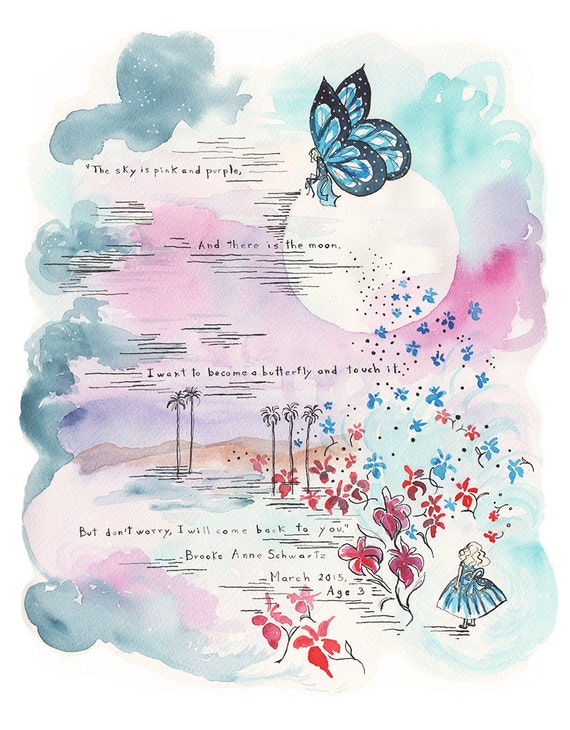 "The sky is pink and purple,
And there is the moon.
I want to become a butterfly and touch it.
But don't worry, I will come back to you."
-Brooke Anne Schwartz
March 2015,
Age 3